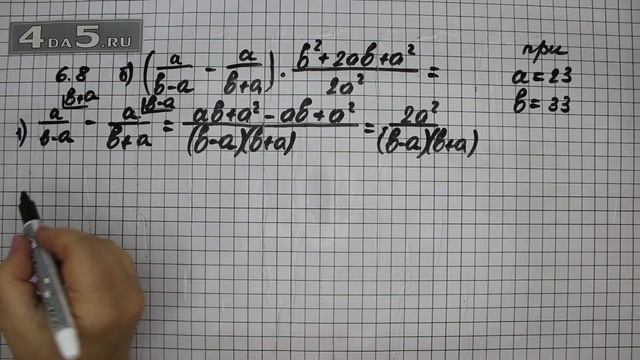 4DA5.RU
6.8 б) (a/(b-a) - a/(b+a)) · (b²+2ab+a²)/(2a²) =
при
a=23
b=33
1) a/(b-a) |b+a - a/(b+a) |b-a = (ab+a²-ab+a²)/((b-a)(b+a)) = 2a²/((b-a)(b+a))